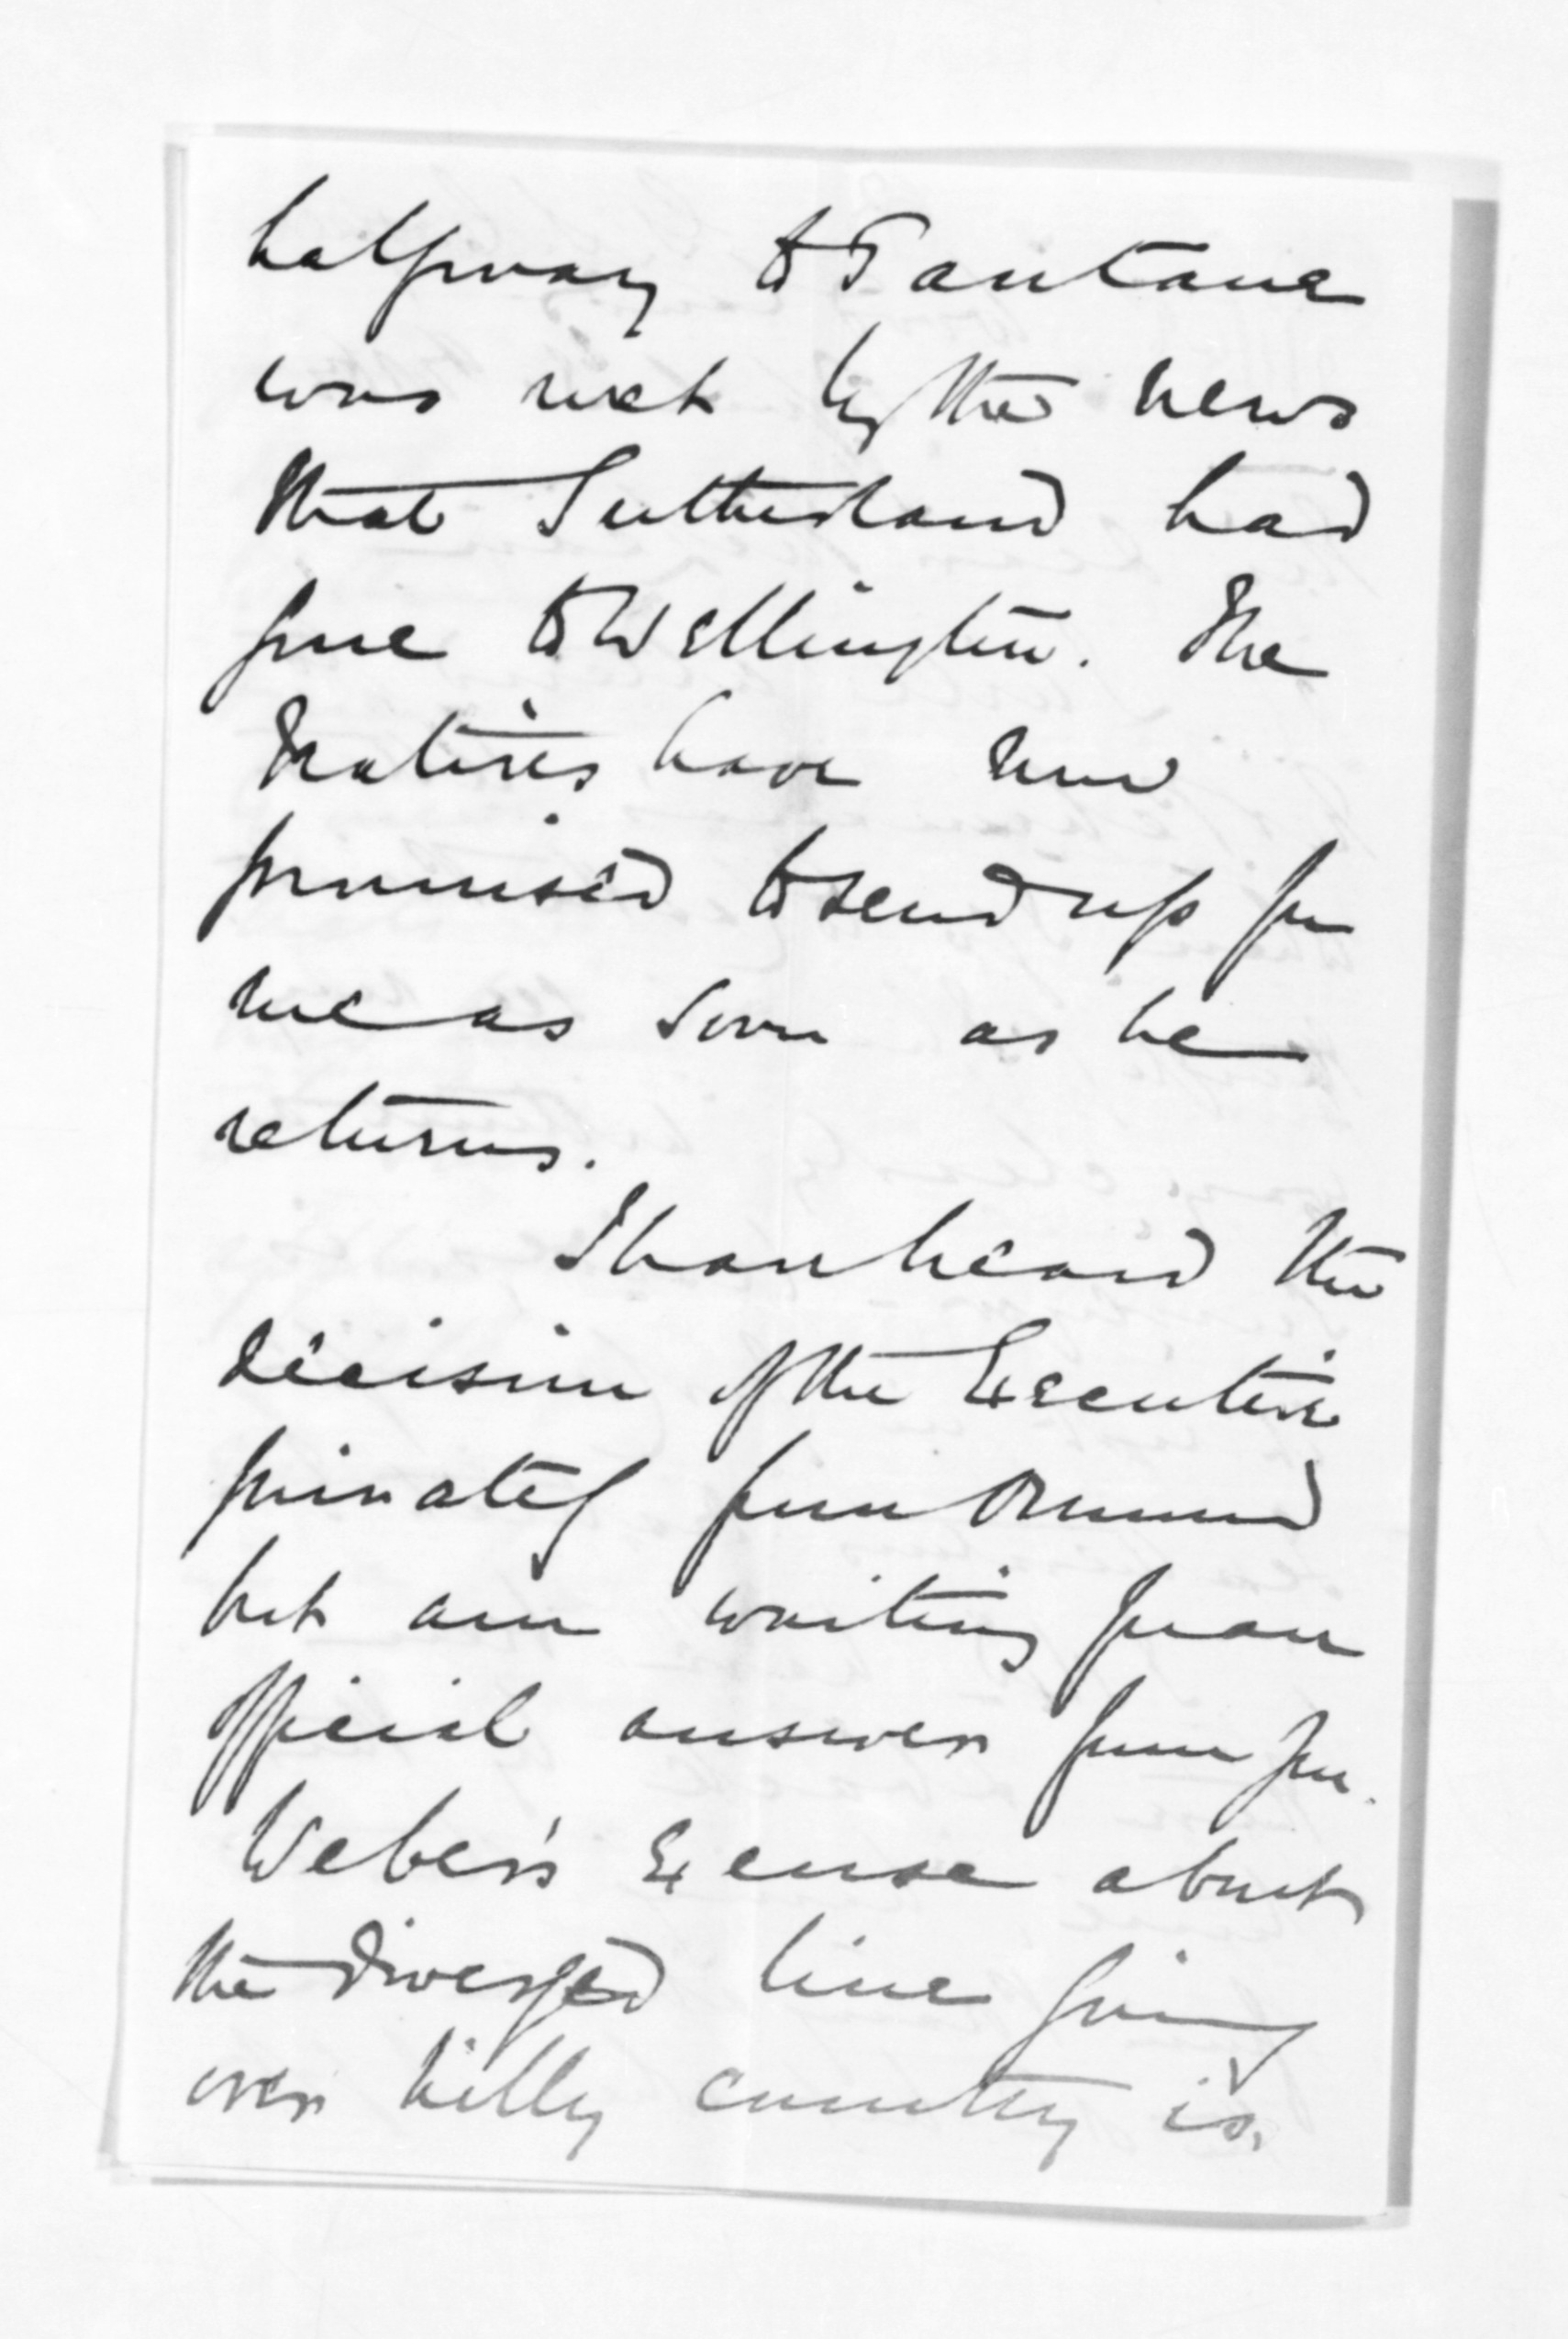 halfway to Tautane
was met by the news
that Sutherland had
gone to Wellington. The
Natives have now
promised to send up for
me as soon as he
returns.
I have heard the
decision of the Executive
privately from Ormond
but am waiting for an
official answer from you.
Weber's Excuse about
the diverged line going
over hilly country is,